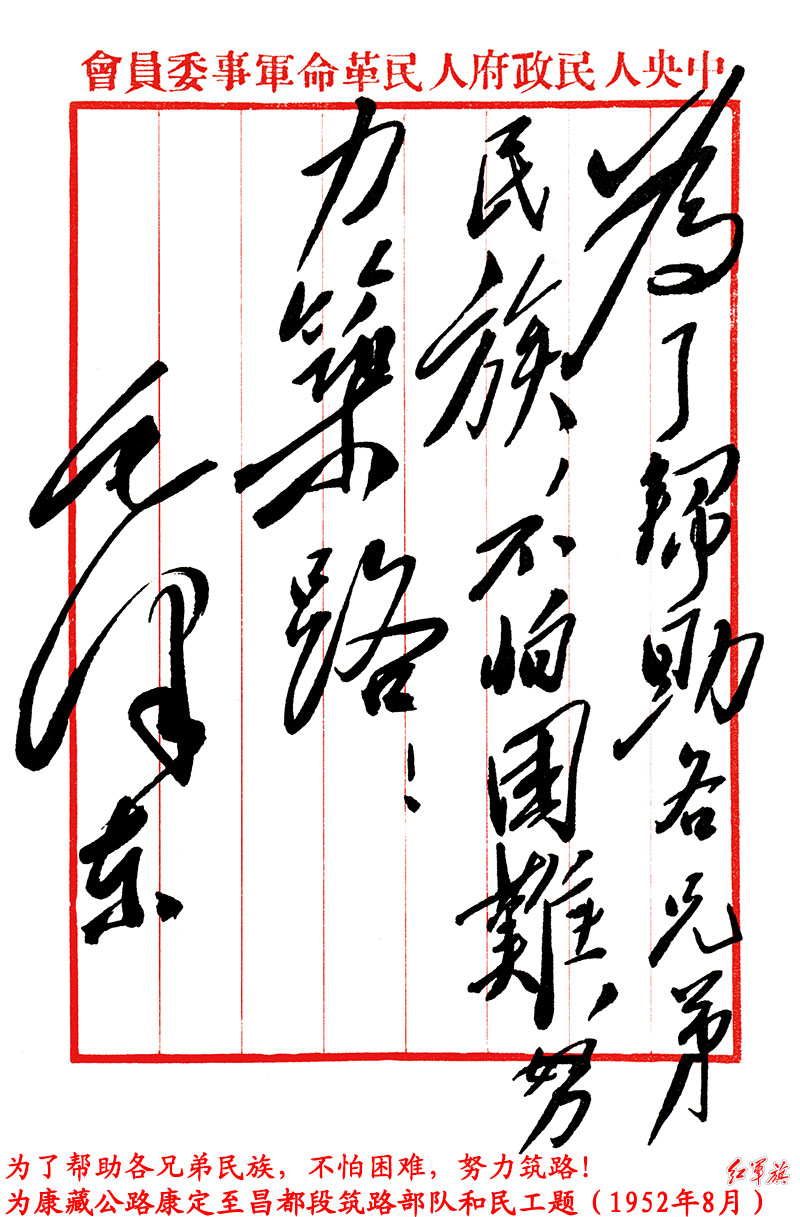 中央人民政府人民革命軍事委員會
為了帮助各兄弟
民族,不怕困難,努
力築路!
毛泽东
为了帮助各兄弟民族，不怕困难，努力筑路！
红军旗
为康藏公路康定至昌都段筑路部队和民工题（1952年8月）